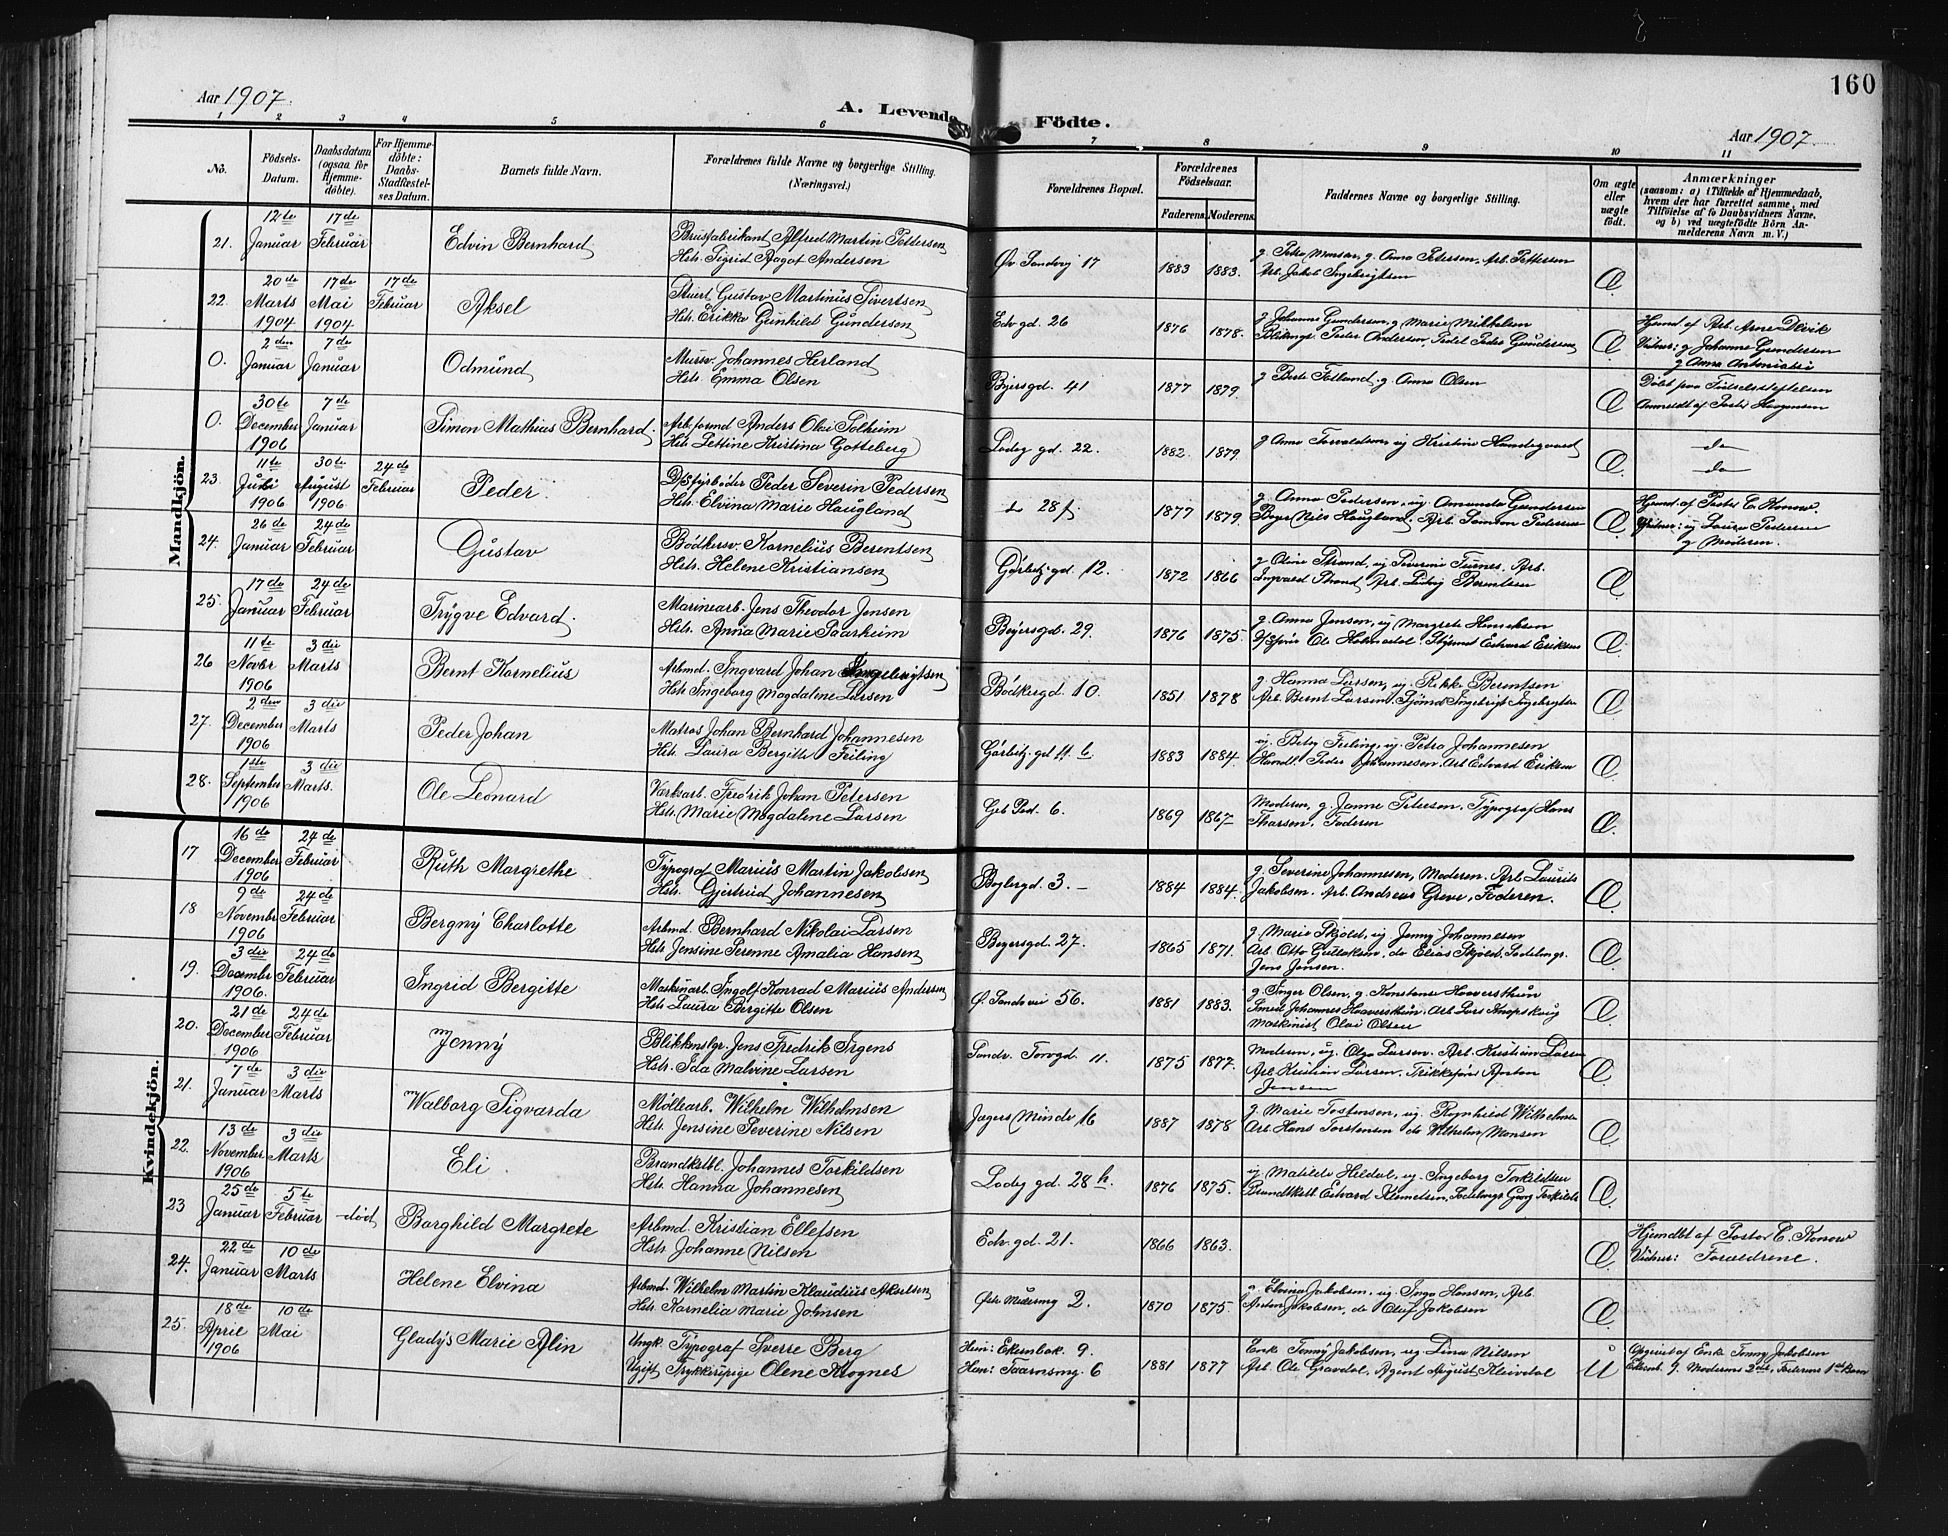 160
Aar 1907.
A. Levende Födte.
Aar 1907.
1 2 3 4 5 6 7 8 9 10 11
No.
Födsels-Datum.
Daabsdatum (ogsaa for Hjemmedöbte).
For Hjemmedöbte: Daabs-Stadfæstelses Datum.
Barnets fulde Navn.
Forældrenes fulde Navne og borgerlige Stilling.
(Næringsvei.)
Forældrenes Bopæl.
Forældrenes Födselsaar.
Faderens. Moderens.
Faddernes Navne og borgerlige Stilling.
Om ægte eller uægte födt.
Anmærkninger
(saasom: a) i Tilfælde af Hjemmedaab, hvem der har forrettet samme, med Tilföielse af to Daabsvidners Navne, og b) ved uægtefödte Börn Anmelderens Navn m. V.)
Mandkjön.
21. 12te Januar 17de Februar Edvin Bernhard
Brusfabrikant Alfred Martin Pettersen
Hstr. Sigrid Aagot Andersen
Øv Sandvig 17 1883 1883.
g. Petra Monsen, g. Anna Petersen, Arb. Pettersen
Arb. Jakob Ingebrigtsen Æ.
22. 20de Marts 1904 17de Mai 1904 17de Februar Aksel
Stuert Gustav Martinus Sivertsen
Hstr. Erikka Gunhild Gundersen
Edv. gd. 26 1876 1878.
g Johanne Gundersen, g Marie Mikkelsen
Peder Andersen, Peder Gundersen Æ
Hjemd af Arb. Arne
Vidner: g Johanne Gundersen
g Anna
0. 2den Januar 7de Januar Odmund
Mursv. Johannes Herland
Hstr. Emma Olsen
Beyersgd. 41 1877 1879.
g Berte Fotland, g Anna Olsen Æ
Döbt paa Födselsstiftelsen
Anmeldt af Pastor
0. 30te December 1906 7de Januar Simon Mathias Bernhard.
Arb. formd Anders Olai Solheim
Hstr Lettine Kristina Gotteberg
Ladeg gd. 22. 1882. 1879
g Anna Torvaldsen, ug Kristine Æ
do
do
23. 11te Juli 1906 30te August 1906 24de Februar Peder.
D/S fyrböder Peder Severin Pedersen
Hstr. Elvina Marie Haugland
28 f. 1877 1879.
g. Anna Pedersen, ug Amanda Gundersen
Nils Haugland. Arb. Simon Pedersen Æ.
Hjemd. af Pastor C. Konow.
Vidner: ug Laura Pedersen
g Moderen.
24. 26de Januar 24de Februar Gustav
Bödkersv. Kornelius Berentsen
Hstr. Helene Kristiansen
Görbitz gd. 12. 1872 1866
g Oline Strand, ug Severine Arb.
Ingvald Strand, Arb. Ludvig Berentsen Æ
25. 17de Januar 24de Februar Trygve Edvard.
Marinearb. Jens Theodor Jensen
Hstr. Anna Marie Saarheim
Beyersgd. 29. 1876 1875.
g. Anna Jensen, ug Margrete Henriksen
Ole Edvard Eriksen Æ
26 11te Novbr 1906 3die Marts Bernt Kornelius
Arbmd. Ingvard Johan Ingebrigtsen
Hstr Ingeborg Magdalene Larsen
Bödkergd. 10. 1851 1878
g. Hanna Larsen, ug. Rikke Berentsen
Arb Bernt Larsen, Sjömd Ingebrigt Ingebrigtsen Æ
27. 2den December 1906 3die Marts Peder Johan
Matros Johan Bernhard Johannesen
Hstr. Laura Bergitte Feiling
Görbitz. gd 6 1883 1884.
ug. Betsy Feiling, ug. Petra Johannesen
Handl. Peder Johannesen. Arb Edvard Eriksen Æ
28. 1ste September 1906 3die Marts. Ole Leonard
Værksarb. Fredrik Johan Petersen
Hstr. Marie Magdalene Larsen
6. 1869 1867
Moderen, g. Janne Petersen, Typograf Hans
Faderen Æ.
Kvindekjön.
17 16de December 1906 24de Februar Ruth Margrethe
Typograf Marius Martin Jakobsen
Hstr. Gjertrud Johannesen
3. 1884 1884.
g. Severine Johannesen, Moderen. Arb. Laurits
Jakobsen. Arb. Andreas Greve, Faderen. Æ
18 9de November 1906 24de Februar Bergny Charlotte
Arbmd. Bernhard Nikolai Larsen
Hstr. Jensine Serenne Amalia Hansen
Beyersgd. 27. 1865 1871.
g. Marie Skjold, ug Jenny Johannesen
Arb Otto Gullaksen, do Elias Skjold, Sadelmgr.
Jens Jensen. Æ
19. 3die December 1906. 24de Februar Ingrid Bergitte
Maskinarb. Ingolf Konrad Marius Andersen
Hstr. Laura Bergitte Olsen
Ø. Sandv. vei 56. 1881 1883.
g. Inger Olsen, g. Konstanse
Smed Johannes Arb. Lars
Maskinist Olai Olsen Æ
20. 21de December 1906 24de Februar Jenny
Blikkenslgr. Jens Fredrik Irgens
Hstr. Ida Malvine Larsen
Sandv. Torvgd. 11. 1875 1877.
Moderen, ug. Olga Larsen. Arb. Kristian Larsen
Arb. Kristian Larsen, Anton
Jensen Æ
21. 7de Januar 3die Marts Walborg Sigvarda
Møllearb. Wilhelm Wilhelmsen
Hstr. Jensine Severine Nilsen
Jægers Mindv 16 1887 1878
g. Marie Torstensen, ug. Ragnhild Wilhelmsen
Arb. Hans Torstensen do Wilhelm Monsen Æ
22. 13de November 1906 3die Marts Eli.
Brandkstbl. Johannes Torkildsen
Hstr. Hanna Johannesen
Ladeg gd. 28 h. 1876 1875.
ug. Matilde Heldal, ug Ingeborg Torkildsen
Edvard Sadelmgr Georg Torkildsen Æ
23 25de Januar 5te Februar død Borghild Margrete
Arbmd. Kristian Ellefsen
Hstr. Johanne Nilsen
Edv. gd. 21. 1866 1863. Æ
Hjemdbt af Pastor C. Konow
Vidner: Forældrene.
24. 22de Januar 10de Marts Helene Elvina
Arbmd. Wilhelm Martin Klaudius Akselsen
Hstr. Kornelia Marie Johnsen
2. 1870 1875.
g Elvina Jakobsen, ug Inga Hansen, Arb
Anton Jakobsen, do Oluf Jakobsen Æ
25. 18de April 1906 10de Mai Gladys Marie Alin
Ungk. Typograf Sverre Berg
Ugift Trykkeripige Olene Krognes
Ham: Ekernbak. 9.
Hun: Taarnsmg. 6 1881 1877
Enk Tonny Jakobsen, ug Lina Nilsen
Arb. Ole Gravdal, Agent August Kleivdal U
Opgivet af Enke Tonny Jakobsen
Ekernb. 9. Moderens 2det, Faderens 1ste Barn